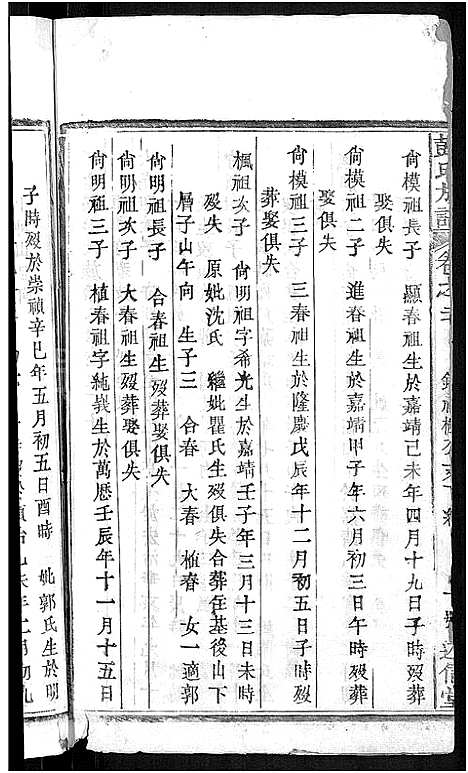 彭氏族譜
卷之
尙模祖長子　顯春祖生於嘉靖己未年四月十九日子時歿葬
娶俱失
尙模祖二子　進春祖生於嘉靖甲子年六月初三日午時歿葬
娶俱失
尙模祖三子　三春祖生於隆慶戊辰年十二月初五日子時歿
葬娶俱失
楓祖次子　尙明祖字希光生於嘉靖壬子年三月十三日未時
歿失　原妣沈氏　繼妣瞿氏生歿俱失合葬在基後山下
層子山午向　生子三　合春　大春　植春　女一適郭
尙明祖長子　合春祖生歿葬娶俱失
尙明祖次子　大春祖生歿葬娶俱失
尙明祖三子　植春祖字純義生於萬曆壬辰年十一月十五日
子時歿於崇禎辛巳年五月初五日酉時　妣郭氏生於明